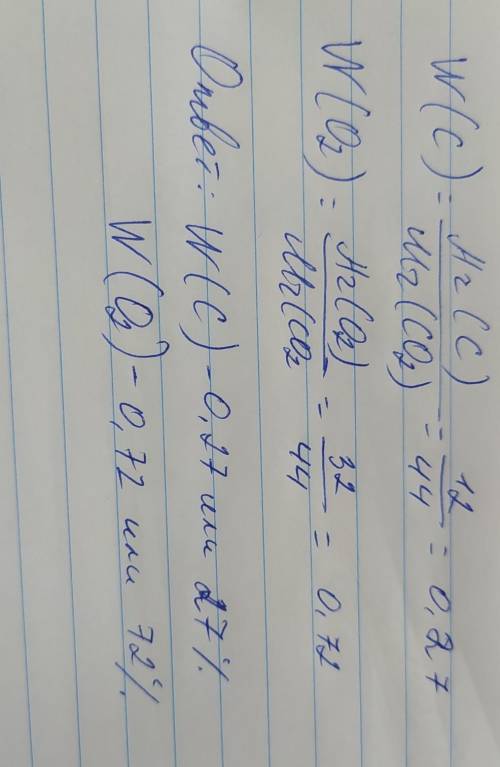 W(C) = Ar(C) / Mr(CO₂) = 12 / 44 = 0,27
W(O₂) = Ar(O₂) / Mr(CO₂ = 32 / 44 = 0,72
Ответ: W(C) - 0,27 или 27%.
W(O₂) - 0,72 или 72%.